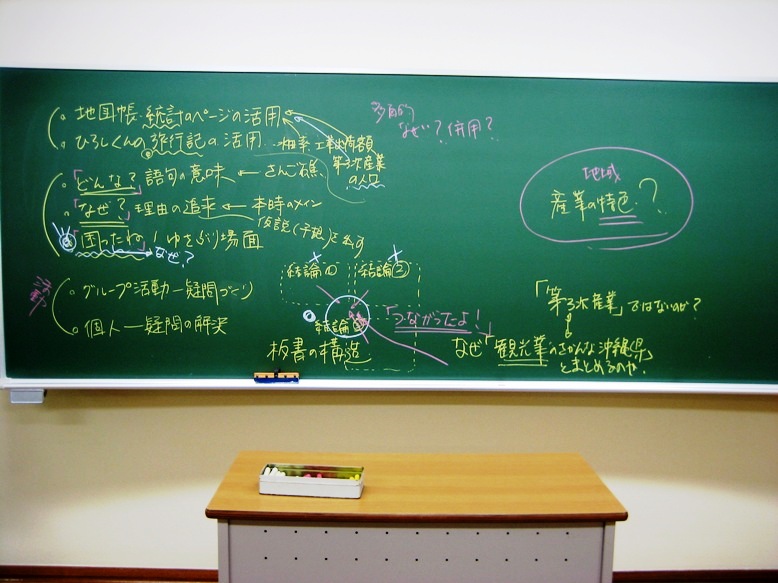 ・地図帳・統計のページの活用
・ひろしくんの旅行記の活用…相違
工業出荷額
第3次産業
の人口
・「どんな?」語句の意味←さんご礁
・「なぜ?」理由の追求←本時のメイン
仮説(予想)を出す
「困ったね」ゆさぶり場面
なぜ?
活動
・グループ活動ー疑問づくり
・個人ー疑問の解決
多面的
なぜ?併用?
結論①
結論②
結論
「つながったよ!」
板書の構造
地域
産業の特色?
「第3次産業」ではないのか?
なぜ「観光業のさかんな沖縄県」
とまとめるのか?